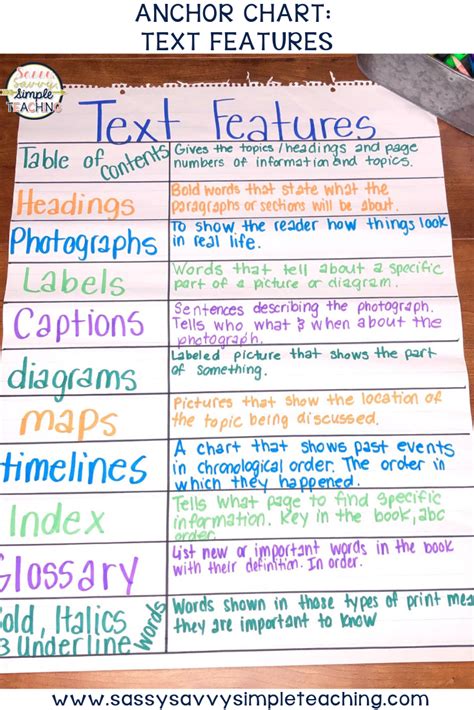 ANCHOR CHART:
TEXT FEATURES
Sassy
Savvy
Simple
TEACHING
Text Features
Table of contents
Gives the topics/headings and page
numbers of information and topics.
Headings
Bold words that state what the
paragraphs or sections will be about.
Photographs
To show the reader how things look
in real life.
Labels
Words that tell about a specific
part of a picture or diagram.
Captions
Sentences describing the photograph.
Tells who what & when about the
photograph.
diagrams
Labeled picture that shows the part
of something.
maps
Pictures that show the location of
the topic being discussed.
timelines
A chart that shows past events
in chronological order. The order in
which they happened.
Index
Tells what page to find specific
information. Key in the book, abc
order
Glossary
List new or important words in the book
with their definition. In order.
Bold, Italics
& Underline words
Words shown in those types of print mean
they are important to know
www.sassysavvysimpleteaching.com